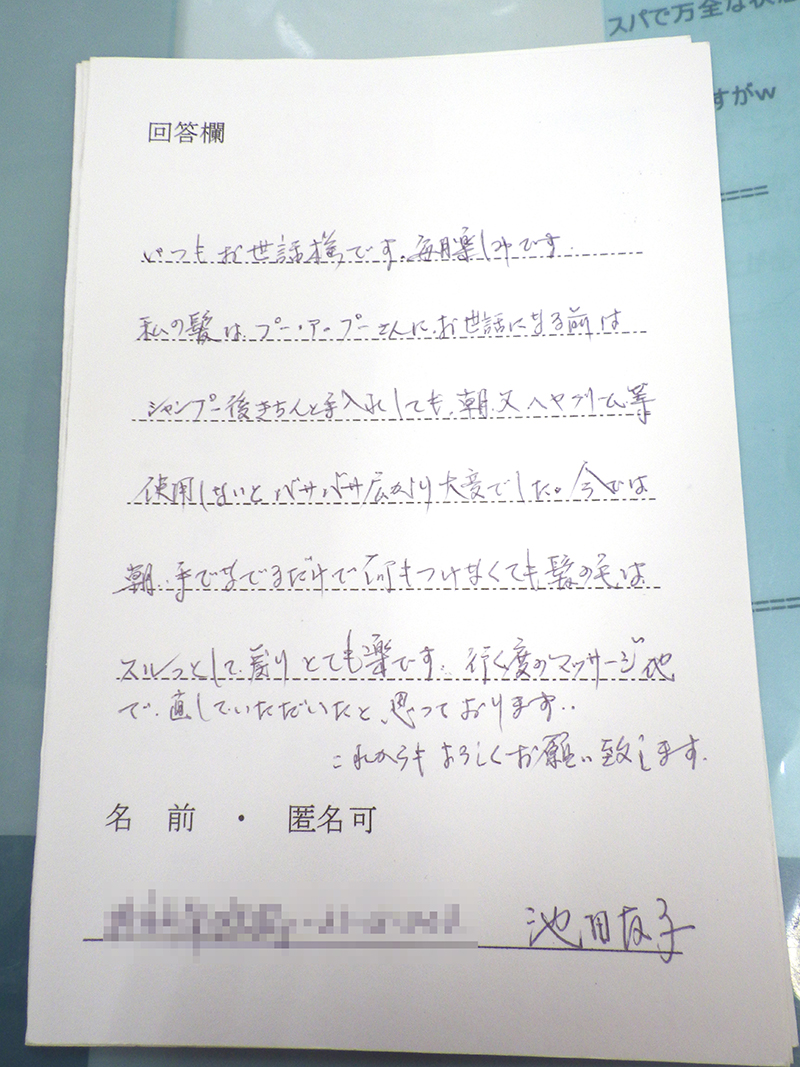 スパで万全な状態
すがw
回答欄
いつもお世話様です。毎月楽しみです。
私の髪は、プー・ア・プーさんにお世話になる前は
シャンプー後きちんと手入れしても、朝、又ヘヤクリーム等
使用しないとバサバサ広がり大変でした。今では
朝、手でなでるだけで何もつけなくても髪の毛は
スルっとして、おり とても楽です。行く度のマッサージ他
で、直していただいたと、思っております..
これからもよろしくお願い致します.
名 前 ・ 匿名可
池田友子